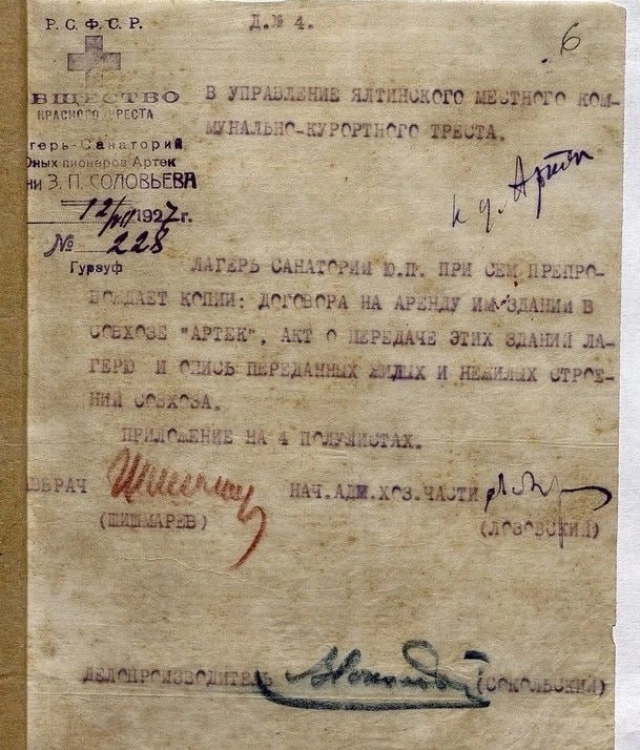 Р.С.Ф.С.Р.
Д.№ 4.
6
ОБЩЕСТВО
КРАСНОГО КРЕСТА
агерь-Санаторий
Юных пионеров Артек
ни З.П.СОЛОВЬЕВА
12/VII 1927 г.
№ 228
Гурзуф
В УПРАВЛЕНИЕ ЯЛТИНСКОГО МЕСТНОГО КОМ-
МУНАЛЬНО-КУРОРТНОГО ТРЕСТА.
к д. Артек
ЛАГЕРЬ САНАТОРИЙ Ю.П. ПРИ СЕМ ПРЕПРО-
ВОЖДАЕТ КОПИИ: ДОГОВОРА НА АРЕНДУ ИМ ЗДАНИЙ В
СОВХОЗЕ "АРТЕК", АКТ О ПЕРЕДАЧЕ ЭТИХ ЗДАНИЙ ЛА-
ГЕРЮ И ОПИСЬ ПЕРЕДАННЫХ ЖИЛЫХ И НЕЖИЛЫХ СТРОЕ-
НИЙ СОВХОЗА.
ПРИЛОЖЕНИЕ НА 4 ПОЛУЛИСТАХ.
АВВРАЧ
НАЧ.АДМ.ХОЗ.ЧАСТИ
(ШИШМАРЕВ)
(ЛОЗОВСКИЙ)
ДЕЛОПРОИЗВОДИТЕЛЬ
(СОКОЛЬСКИЙ)